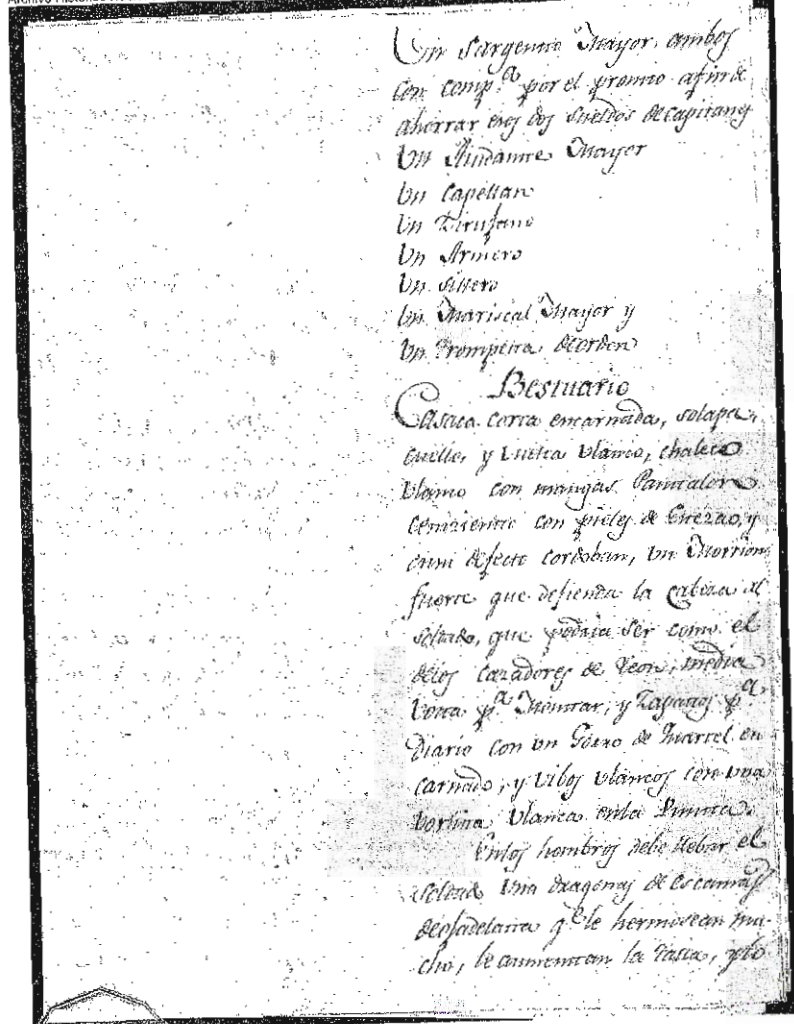 Archivo Histórico
Un Sargento Mayor, ambos
con comp.ª por el pronto afin de
ahorrar esos dos sueldos de capitanes
Un Aiudante Mayor
Un Capellan
Un Zirujano
Un Armero
Un Sillero
Un Mariscal Mayor y
Un Trompeta de orden
Bestuario
Casaca corta encarnada, solapa,
cuello, y buelta blanco, chaleco
blanco con mangas Pantalon
ceniziento con pieles de Cuerzo, y
en su defecto cordoban, un Morrion
fuerte que defienda la cabeza al
soldado, que podria ser como el
delos cazadores de Leon, media
bota p.ª Montar, y Zapatos p.ª
diario con un Gorro de Quartel en
carnado, y vibos blancos con una
borlita blanca enla Punta.
Enlos hombros debe llebar el
soldado una dragonas de escamas
de ojadelata q.e le hermosean mu-
cho, le aumentan la talla, y lo